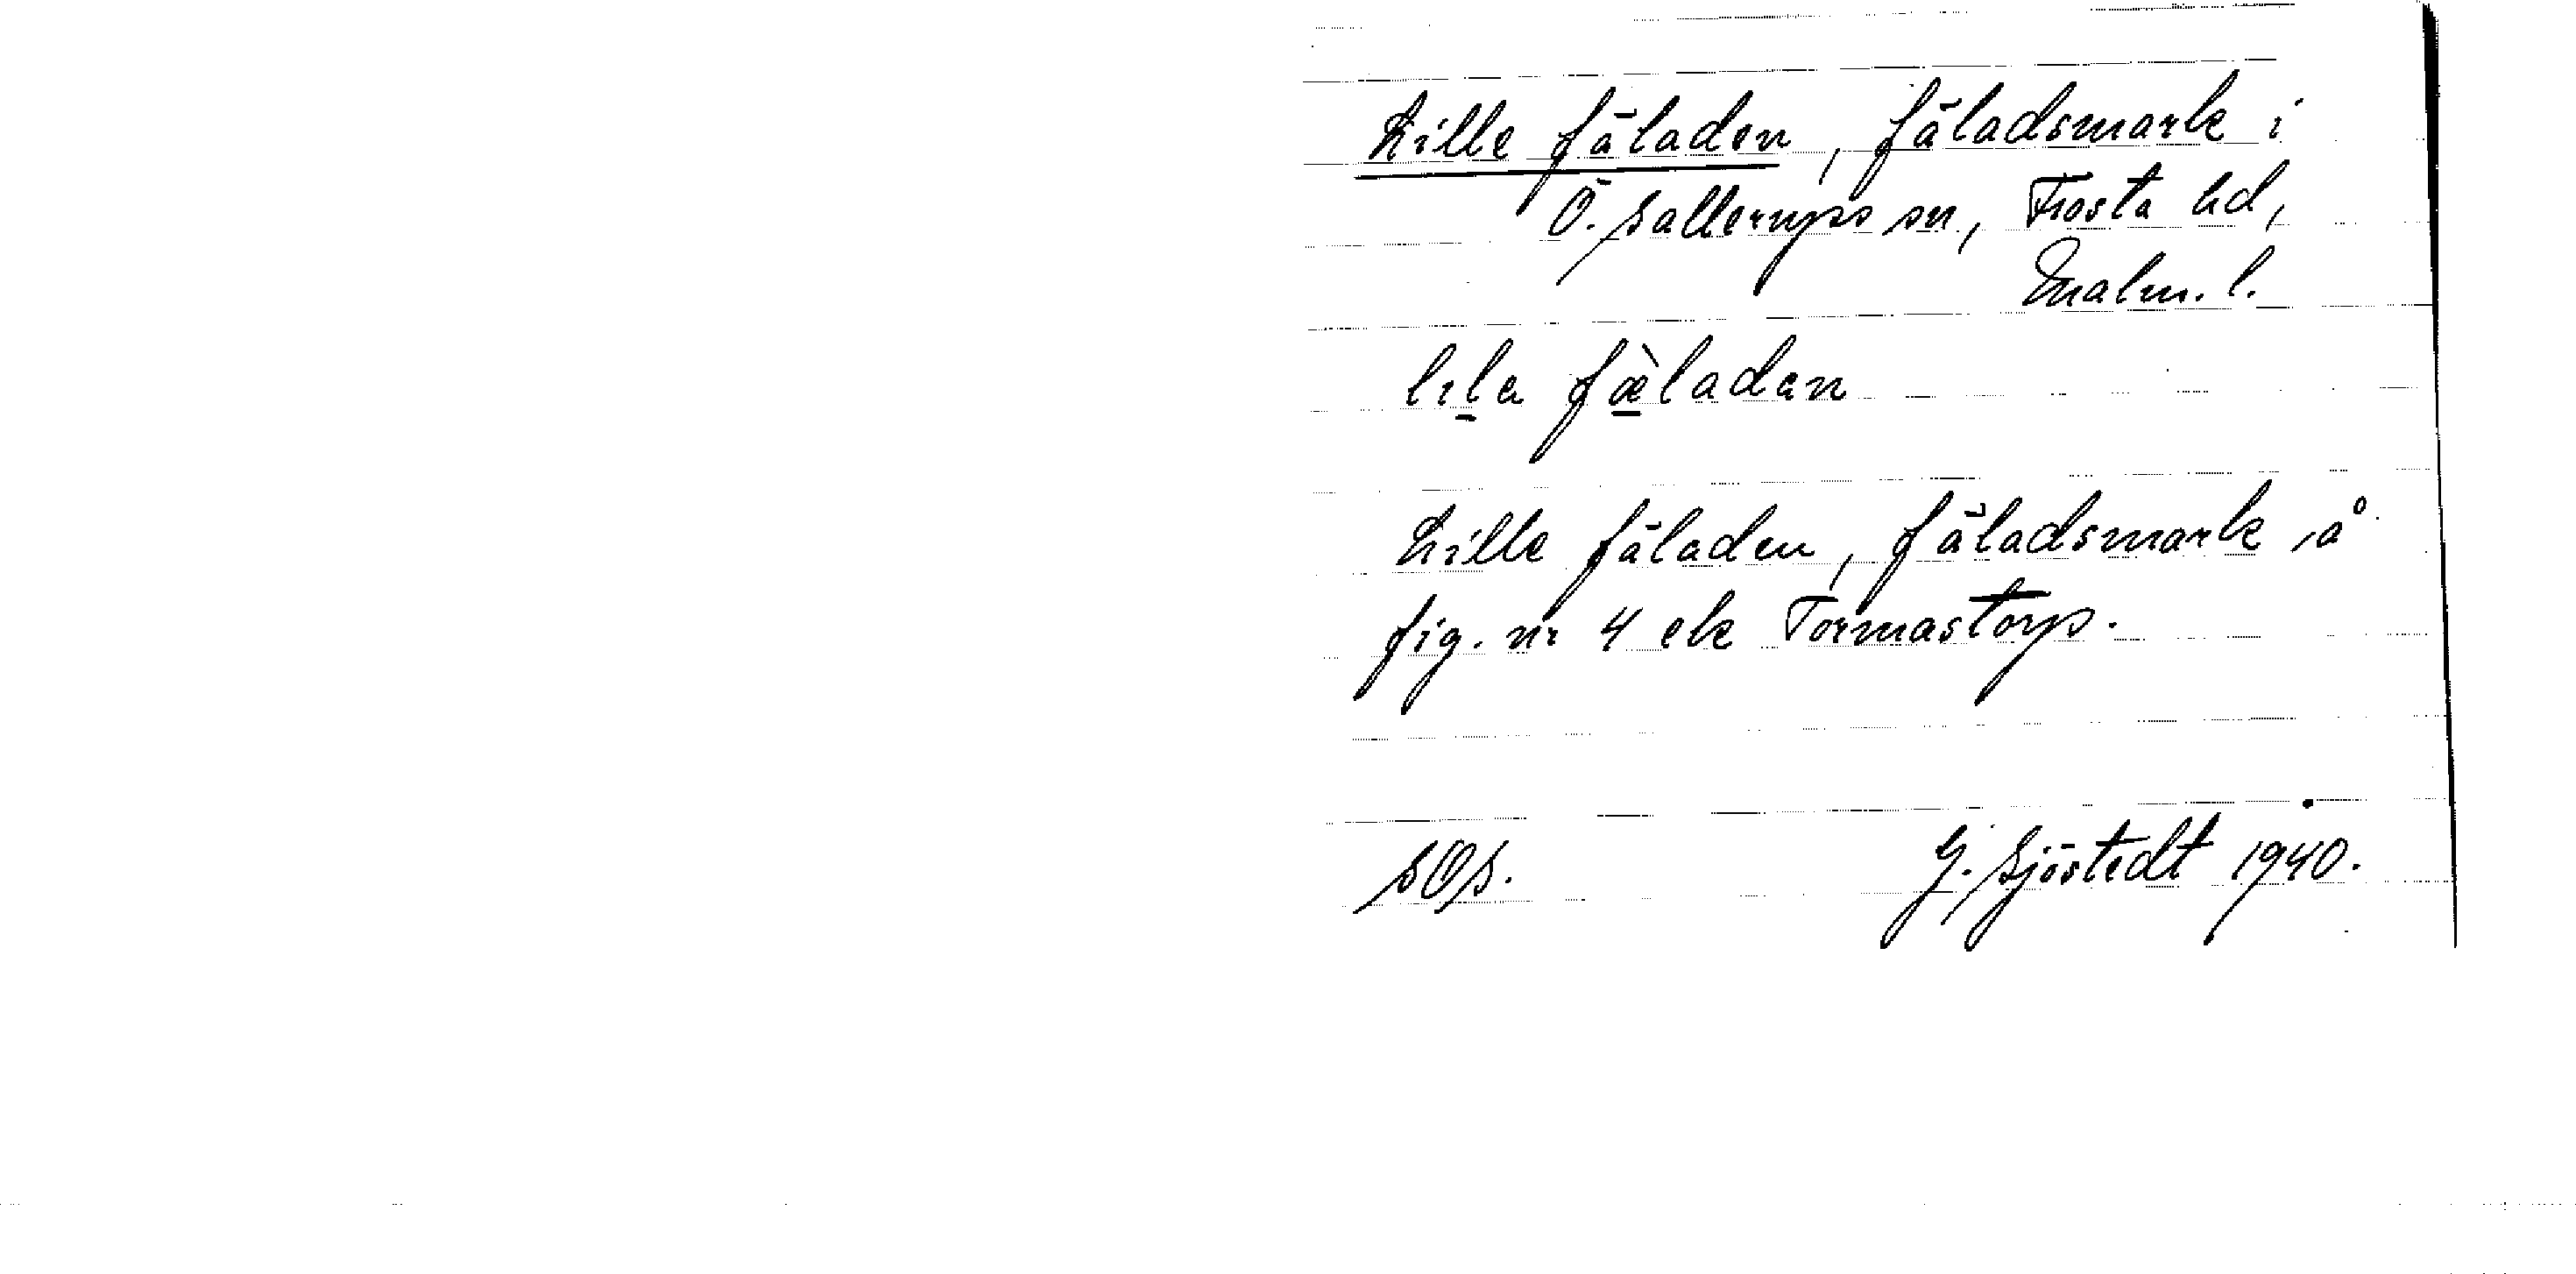 Lille fäladen, fäladsmark i
Ö. Sallerups sn, Frosta hd,
Malm. l.
lila fæ̀ladan
Lille fäladen, fäladsmark å
fig. nr 4 ek Tormastorp.
SOS. G. Sjöstedt 1940.